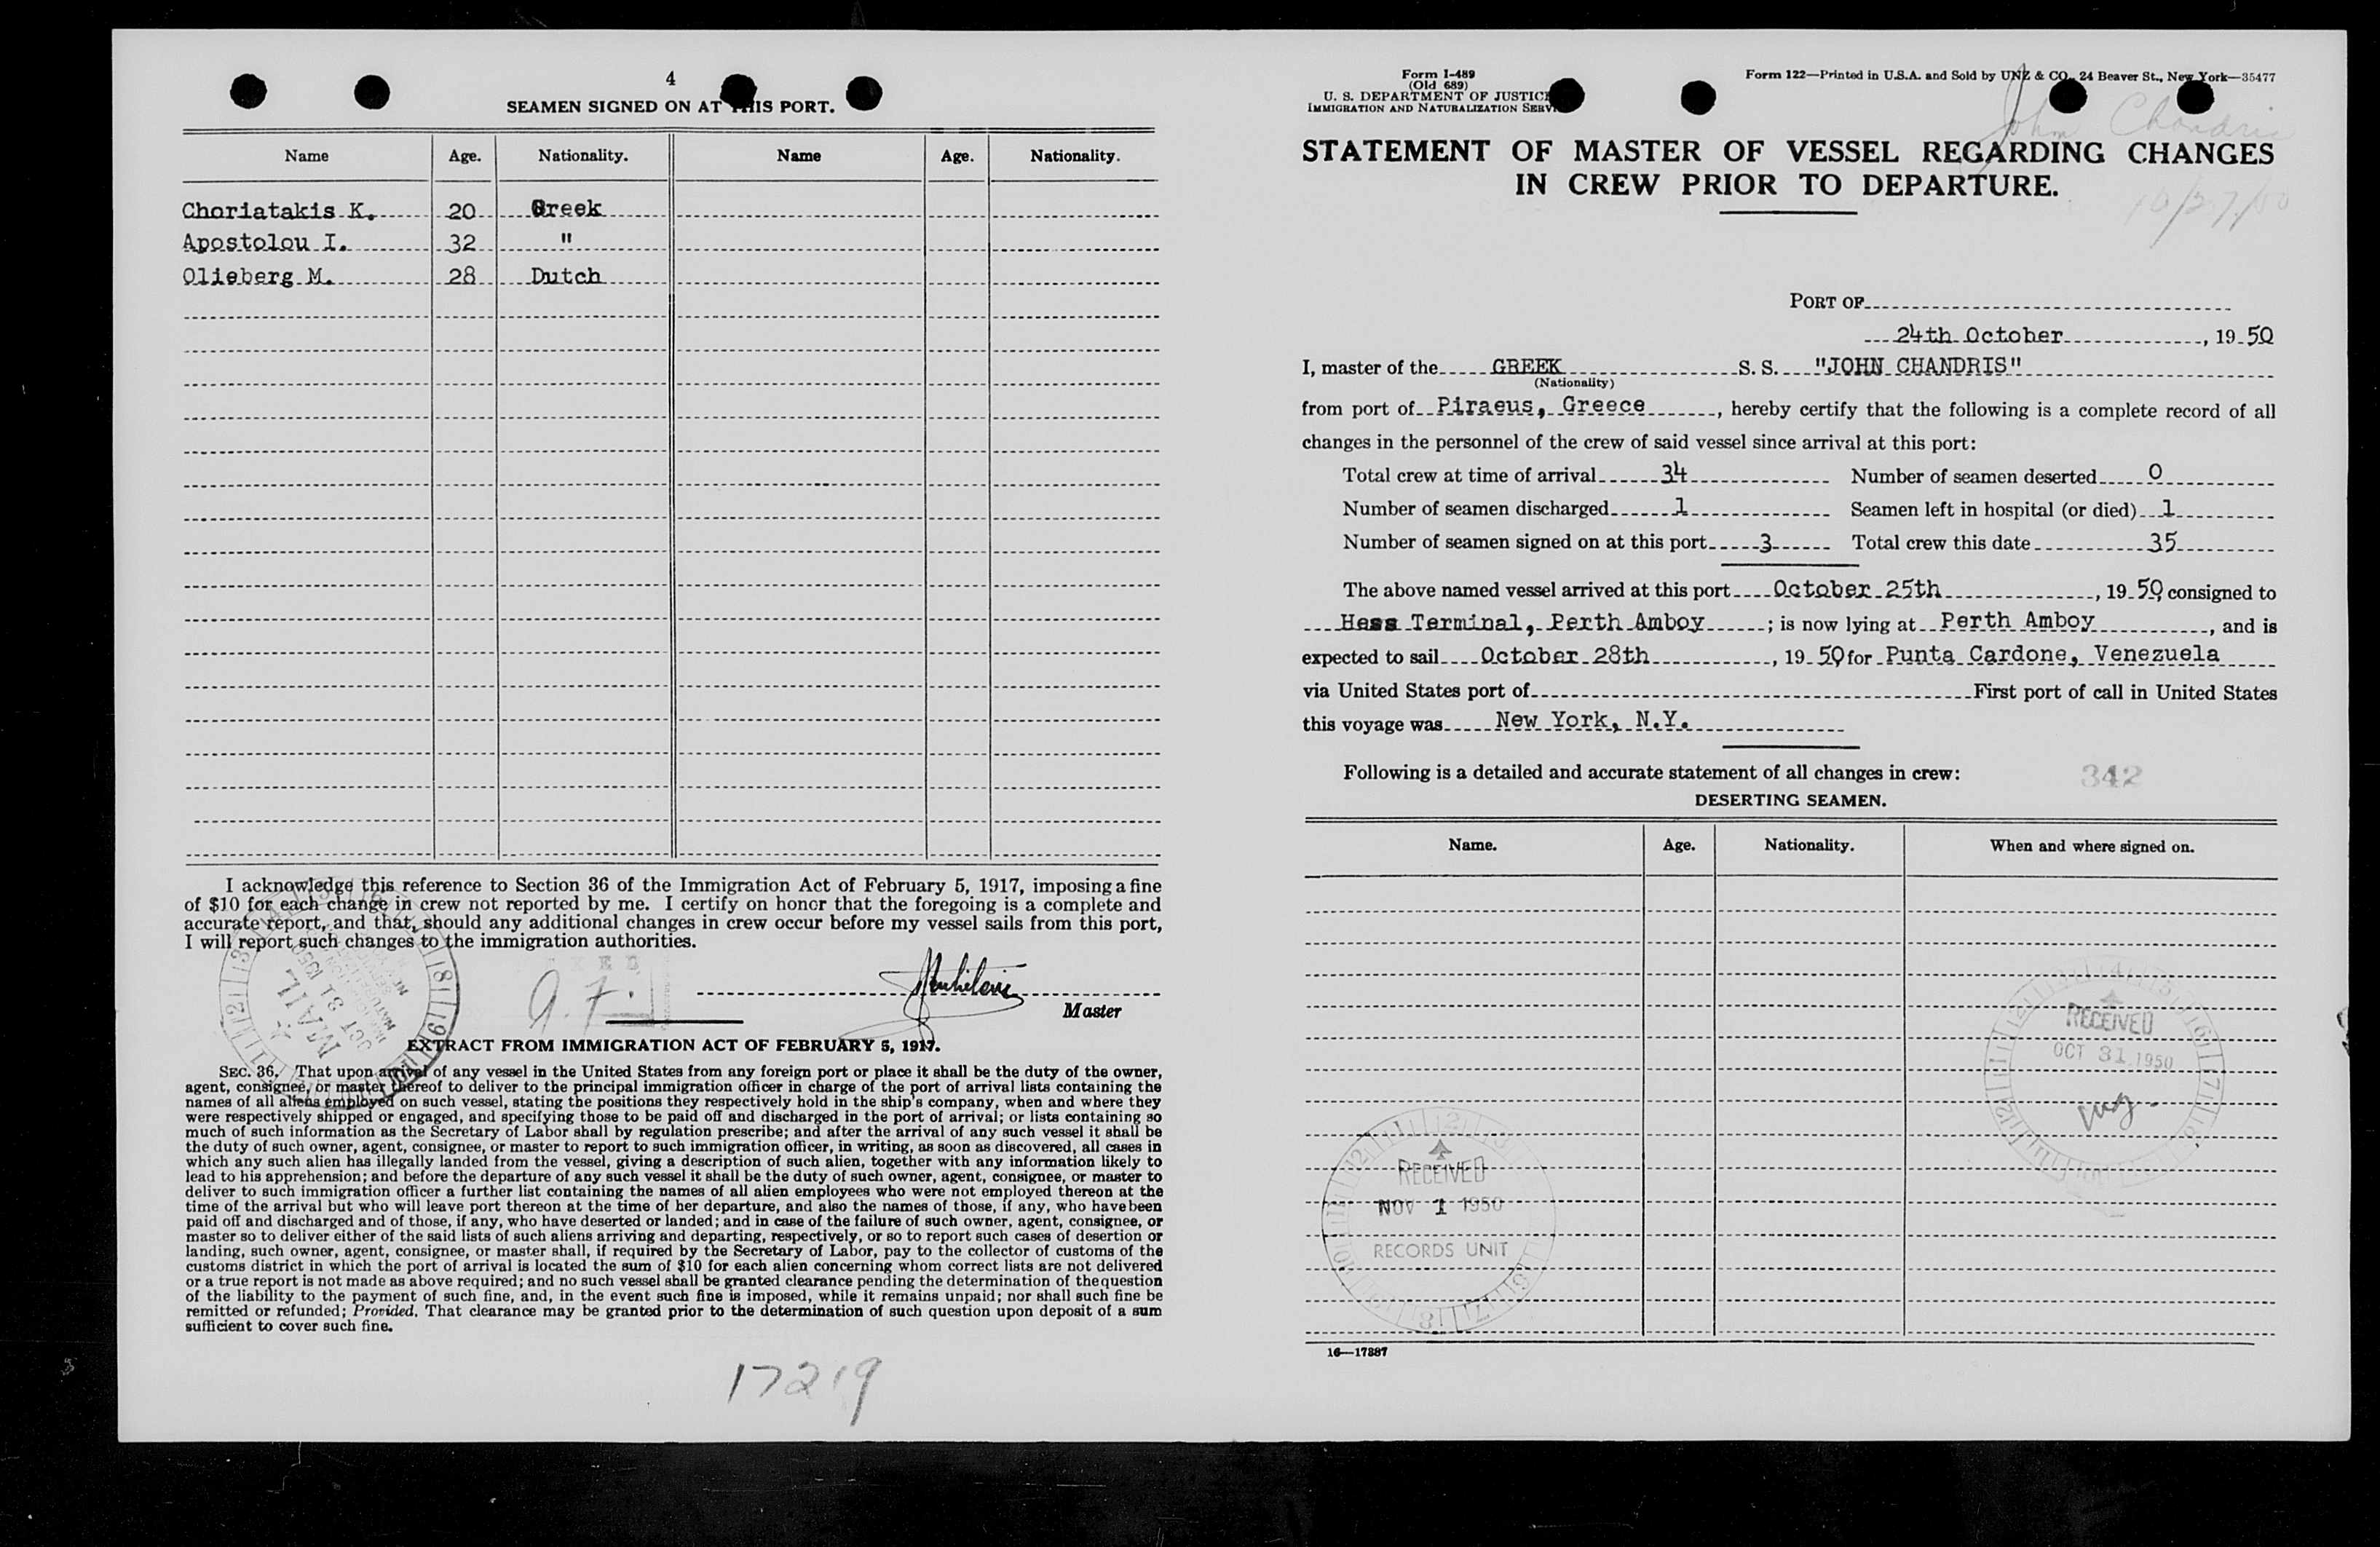 4
SEAMEN SIGNED ON AT THIS PORT.
Name Age. Nationality. Name Age. Nationality.
Choriatakis K. 20 Greek
Apostolou I. 32 "
Olieberg M. 28 Dutch
I acknowledge this reference to Section 36 of the Immigration Act of February 5, 1917, imposing a fine
of $10 for each change in crew not reported by me. I certify on honor that the foregoing is a complete and
accurate report, and that, should any additional changes in crew occur before my vessel sails from this port,
I will report such changes to the immigration authorities.
MAIL
OCT 31 1950
Master
EXTRACT FROM IMMIGRATION ACT OF FEBRUARY 5, 1917.
SEC. 36. That upon arrival of any vessel in the United States from any foreign port or place it shall be the duty of the owner,
agent, consignee, or master thereof to deliver to the principal immigration officer in charge of the port of arrival lists containing the
names of all aliens employed on such vessel, stating the positions they respectively hold in the ship's company, when and where they
were respectively shipped or engaged, and specifying those to be paid off and discharged in the port of arrival; or lists containing so
much of such information as the Secretary of Labor shall by regulation prescribe; and after the arrival of any such vessel it shall be
the duty of such owner, agent, consignee, or master to report to such immigration officer, in writing, as soon as discovered, all cases in
which any such alien has illegally landed from the vessel, giving a description of such alien, together with any information likely to
lead to his apprehension; and before the departure of any such vessel it shall be the duty of such owner, agent, consignee, or master to
deliver to such immigration officer a further list containing the names of all alien employees who were not employed thereon at the
time of the arrival but who will leave port thereon at the time of her departure, and also the names of those, if any, who have been
paid off and discharged and of those, if any, who have deserted or landed; and in case of the failure of such owner, agent, consignee, or
master so to deliver either of the said lists of such aliens arriving and departing, respectively, or so to report such cases of desertion or
landing, such owner, agent, consignee, or master shall, if required by the Secretary of Labor, pay to the collector of customs of the
customs district in which the port of arrival is located the sum of $10 for each alien concerning whom correct lists are not delivered
or a true report is not made as above required; and no such vessel shall be granted clearance pending the determination of the question
of the liability to the payment of such fine, and, in the event such fine is imposed, while it remains unpaid; nor shall such fine be
remitted or refunded; Provided, That clearance may be granted prior to the determination of such question upon deposit of a sum
sufficient to cover such fine.
17219
Form I-489
(Old 689)
U. S. DEPARTMENT OF JUSTICE
IMMIGRATION AND NATURALIZATION SERVICE
Form 122—Printed in U.S.A. and Sold by UNZ & CO., 24 Beaver St., New York—35477
John Chandris
STATEMENT OF MASTER OF VESSEL REGARDING CHANGES
IN CREW PRIOR TO DEPARTURE.
10/27/50
PORT OF
24th October, 19 50
I, master of the GREEK S. S. "JOHN CHANDRIS"
(Nationality)
from port of Piraeus, Greece, hereby certify that the following is a complete record of all
changes in the personnel of the crew of said vessel since arrival at this port:
Total crew at time of arrival 34 Number of seamen deserted 0
Number of seamen discharged 1 Seamen left in hospital (or died) 1
Number of seamen signed on at this port 3 Total crew this date 35
The above named vessel arrived at this port October 25th, 19 50, consigned to
Hess Terminal, Perth Amboy; is now lying at Perth Amboy, and is
expected to sail October 28th, 19 50 for Punta Cardone, Venezuela
via United States port of First port of call in United States
this voyage was New York, N.Y.
Following is a detailed and accurate statement of all changes in crew:
342
DESERTING SEAMEN.
Name. Age. Nationality. When and where signed on.
RECEIVED
OCT 31 1950
RECEIVED
NOV 1 1950
RECORDS UNIT
16—17887